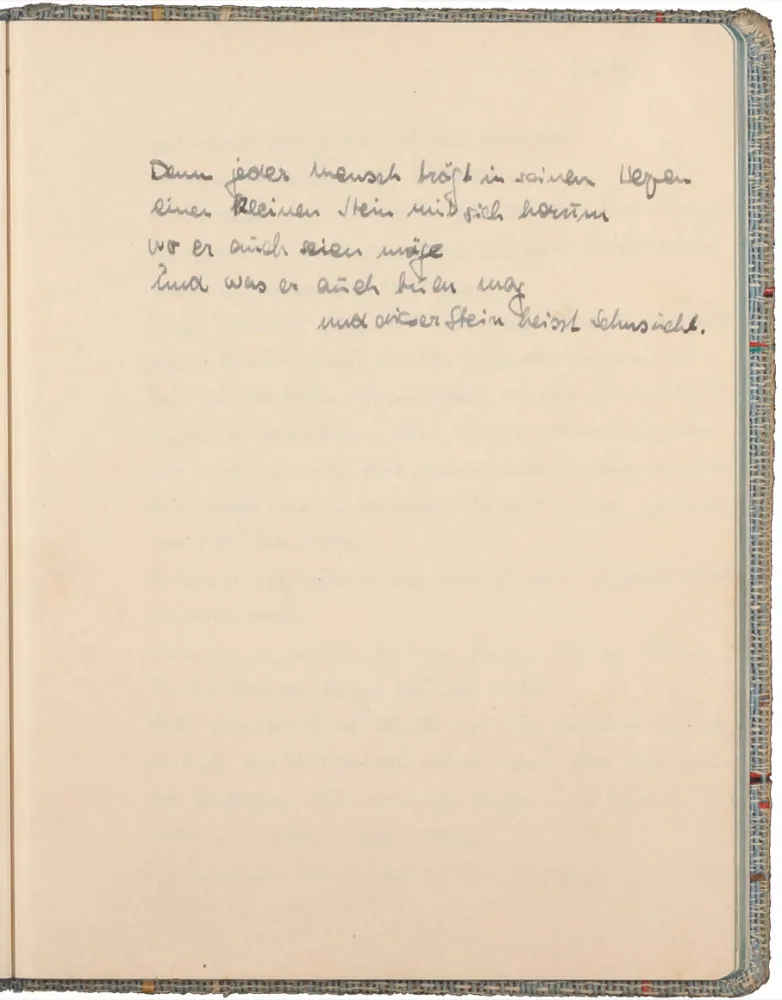 Denn jeder Mensch trägt in seinen Herzen
einen kleinen Stein mit sich herum
wo er auch seien möge
Und was er auch tuen mag
und dieser Stein heisst Sehnsucht.